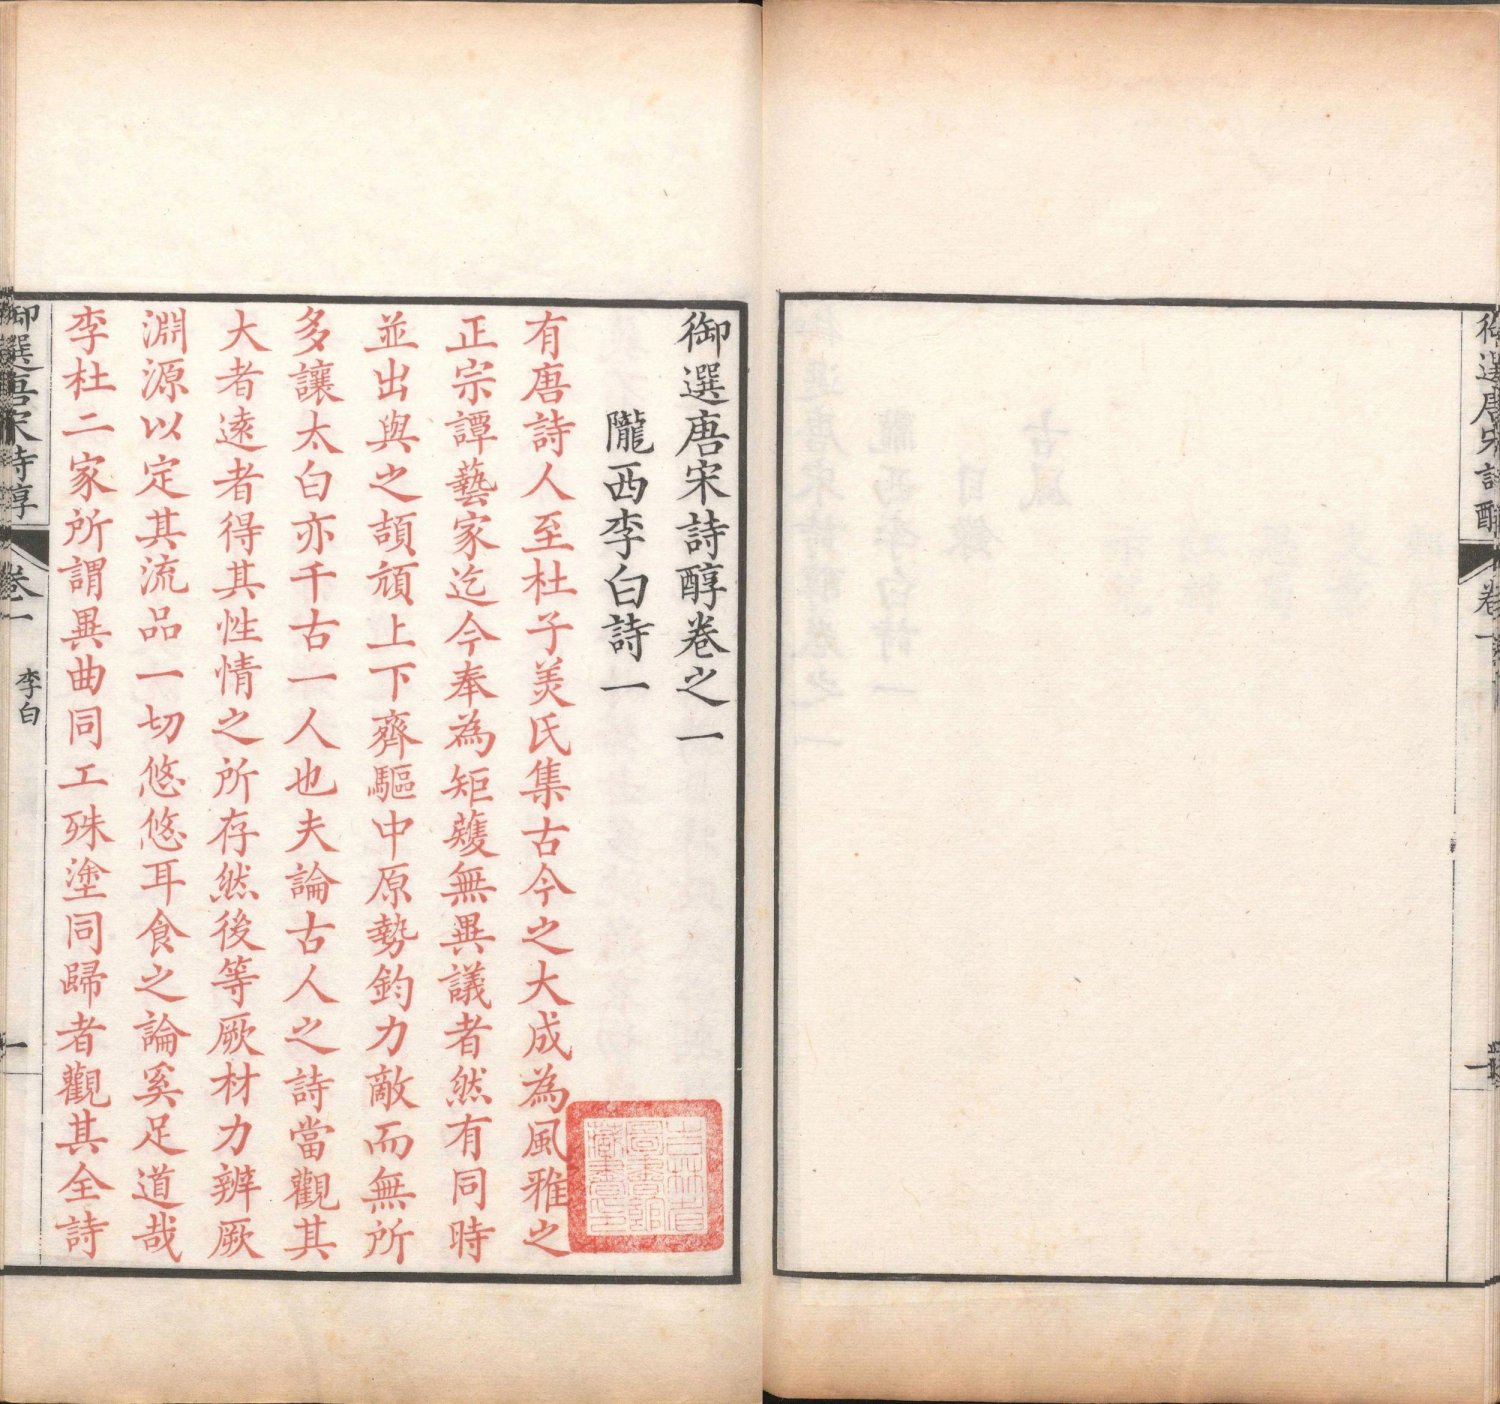 御選唐宋詩醇
卷一
一
御選唐宋詩醇卷之一
隴西李白詩一
有唐詩人至杜子美氏集古今之大成為風雅之
正宗譚藝家迄今奉為矩矱無異議者然有同時
並出與之頡頏上下齊驅中原勢鈞力敵而無所
多讓太白亦千古一人也夫論古人之詩當觀其
大者遠者得其性情之所存然後等厥材力辨厥
淵源以定其流品一切悠悠耳食之論奚足道哉
李杜二家所謂異曲同工殊塗同歸者觀其全詩
御選唐宋詩醇
卷一
李白
一
吉林省
圖書館
藏書印